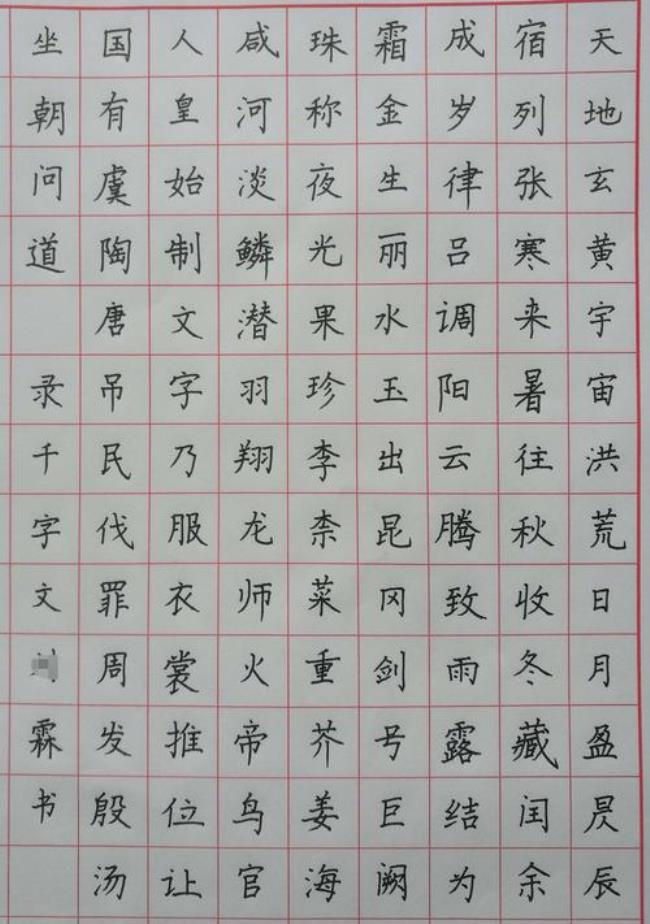 天地玄黄宇宙洪荒日月盈昃辰
宿列张寒来暑往秋收冬藏闰余
成岁律吕调阳云腾致雨露结为
霜金生丽水玉出昆冈剑号巨阙
珠称夜光果珍李柰菜重芥姜海
咸河淡鳞潜羽翔龙师火帝鸟官
人皇始制文字乃服衣裳推位让
国有虞陶唐吊民伐罪周发殷汤
坐朝问道 录千字文霖书